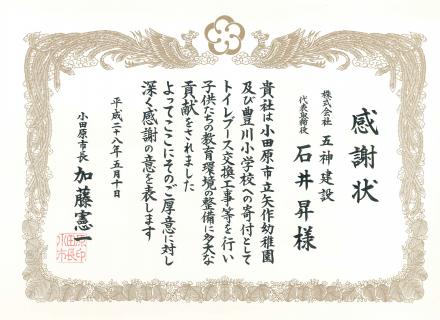 感謝状
株式会社 五神建設
代表取締役 石井昇様
貴社は小田原市立矢作幼稚園
及び豊川小学校への寄付として
トイレブース交換工事等を行い
子供たちの教育環境の整備に多大な
貢献をされました
よってここにそのご厚意に対し
深く感謝の意を表します
平成二十八年五月十日
小田原市長 加藤憲一